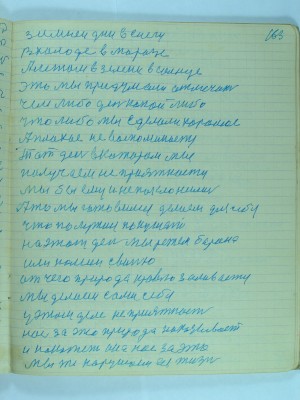 163
зимой дни в снегу
в холоде в морозе
А летом в зелени в солнце
Это мы придумали отмечать
чем либо день какой либо
что либо мы сделали хорошее
А плохое не вспоминать
Тот день в котором мы
получаем не приятности
мы бы ему и не поклонили
А то мы готовимся делаем для себя
что получше покушать
на этот день мы режем барана
или колем свинью
от чего природа кровью заливается
мы делаем сами себе
у этом деле не приятность
нас за это природа наказывает
и накажет она нас за это
мы же нарушаем её жизнь